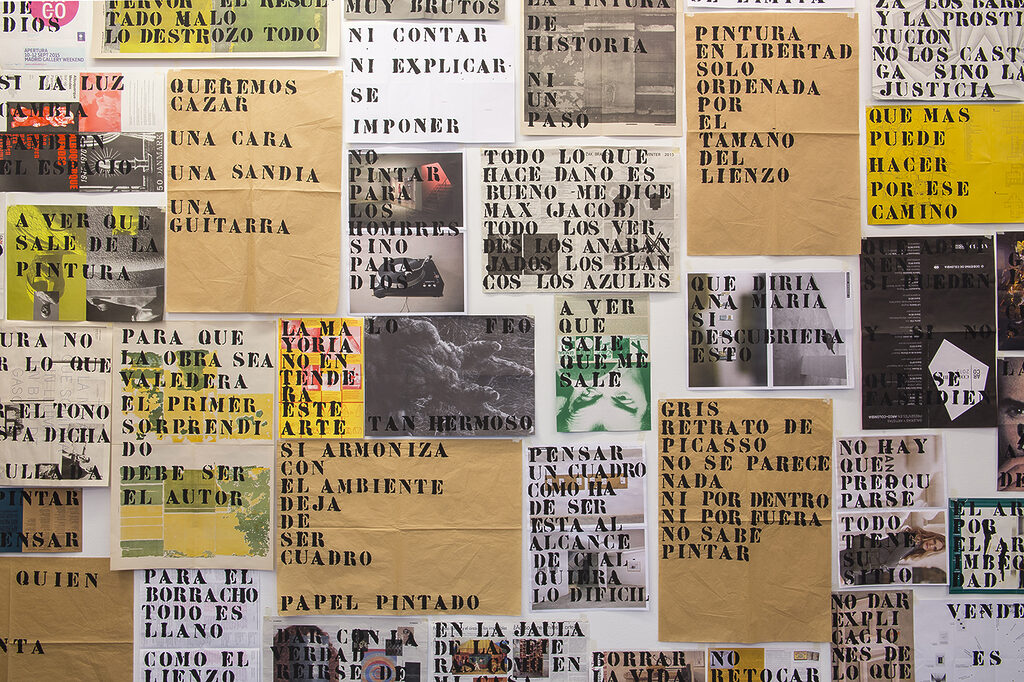 DE
DIOS
GO
APERTURA
10-12 SEPT 2015
MADRID GALLERY WEEKEND
FERVOR EL RESUL
TADO MALO
LO DESTROZO TODO
MUY BRUTOS
NI CONTAR
NI EXPLICAR
SE
IMPONER
LA PINTURA
DE
HISTORIA
NI
UN
PASO
LIMITA
PINTURA
EN LIBERTAD
SOLO
ORDENADA
POR
EL
TAMAÑO
DEL
LIENZO
ZA LOS BARR
Y LA PROSTI
TUCION
NO LOS CAST
GA SINO LA
JUSTICIA
SI LA LUZ
CAMBIA
TAMBIEN
EL ESPACIO
QUEREMOS
CAZAR
UNA CARA
UNA SANDIA
UNA
GUITARRA
NO
PINTAR
PARA
LOS
HOMBRES
SINO
PARA
DIOS
TODO LO QUE
HACE DAÑO ES
BUENO ME DICE
MAX (JACOB)
TODO LOS VER
DES LOS ANARAN
JADOS LOS BLAN
COS LOS AZULES
QUE MAS
PUEDE
HACER
POR ESE
CAMINO
A VER QUE
SALE DE LA
PINTURA
QUE DIRIA
ANA MARIA
SI
DESCUBRIERA
ESTO
SI PUEDEN
Y SI NO
QUE SE
FASTIDIEN
URA NO
R LO QUE
EL TONO
STA DICHA
PARA QUE
LA OBRA SEA
VALEDERA
EL PRIMER
SORPRENDI
DO
DEBE SER
EL AUTOR
LA MA
YORIA
NO EN
TENDE
RA
ESTE
ARTE
LO FEO
TAN HERMOSO
A VER
QUE
SALE
QUE ME
SALE
SI ARMONIZA
CON
EL AMBIENTE
DEJA
DE
SER
CUADRO
PAPEL PINTADO
PENSAR
UN CUADRO
COMO HA
DE SER
ESTA AL
ALCANCE
DE CUAL
QUIERA
LO DIFICIL
GRIS
RETRATO DE
PICASSO
NO SE PARECE
NADA
NI POR DENTRO
NI POR FUERA
NO SABE
PINTAR
NO HAY
QUE
PREOCU
PARSE
TODO
TIENE
SU
SITIO
EL AR
POR
EL AR
IMBEC
DAD
PINTAR
PENSAR
QUIEN
NTA
PARA EL
BORRACHO
TODO ES
LLANO
COMO EL
DAR CON LA
VERDAD
REIRSE DE
EN LA JAULA
DE LAS FIE
RAS COMO EN
MI CASA
BORRAR
LA VIDA
NO
RETOCAR
NO DAR
EXPLI
CACIO
NES DE
LO QUE
VENDE
ES